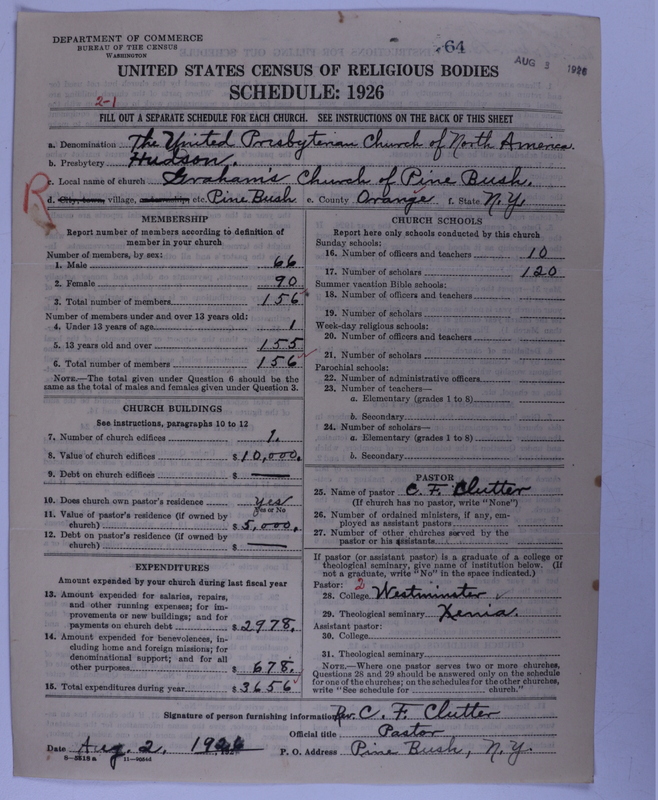 DEPARTMENT OF COMMERCE
BUREAU OF THE CENSUS
WASHINGTON
64
AUG 3 1926
UNITED STATES CENSUS OF RELIGIOUS BODIES
SCHEDULE: 1926
2-1
FILL OUT A SEPARATE SCHEDULE FOR EACH CHURCH. SEE INSTRUCTIONS ON THE BACK OF THIS SHEET
a. Denomination The United Presbyterian Church of North America.
b. Presbytery Hudson.
R
c. Local name of church Graham's Church of Pine Bush.
d. City, town, village, township etc. Pine Bush e. County Orange f. State N.Y.
MEMBERSHIP
Report number of members according to definition of
member in your church
Number of members, by sex:
1. Male 66
2. Female 90
3. Total number of members 156
Number of members under and over 13 years old:
4. Under 13 years of age 1
5. 13 years old and over 155
6. Total number of members 156
NOTE.—The total given under Question 6 should be the
same as the total of males and females given under Question 3.
CHURCH BUILDINGS
See instructions, paragraphs 10 to 12
7. Number of church edifices 1.
8. Value of church edifices $10,000.
9. Debt on church edifices $ —
10. Does church own pastor's residence yes
Yes or No
11. Value of pastor's residence (if owned by
church) $5,000.
12. Debt on pastor's residence (if owned by
church) $ —
EXPENDITURES
Amount expended by your church during last fiscal year
13. Amount expended for salaries, repairs,
and other running expenses; for im-
provements or new buildings; and for
payments on church debt $2978.
14. Amount expended for benevolences, in-
cluding home and foreign missions; for
denominational support; and for all
other purposes $678.
15. Total expenditures during year $3656
CHURCH SCHOOLS
Report here only schools conducted by this church
Sunday schools:
16. Number of officers and teachers 10
17. Number of scholars 120
Summer vacation Bible schools:
18. Number of officers and teachers
19. Number of scholars
Week-day religious schools:
20. Number of officers and teachers
21. Number of scholars
Parochial schools:
22. Number of administrative officers
23. Number of teachers—
a. Elementary (grades 1 to 8)
b. Secondary
24. Number of scholars—
a. Elementary (grades 1 to 8)
b. Secondary
PASTOR
25. Name of pastor C. F. Clutter
(If church has no pastor, write "None")
26. Number of ordained ministers, if any, em-
ployed as assistant pastors
27. Number of other churches served by the
pastor or his assistants
If pastor (or assistant pastor) is a graduate of a college or
theological seminary, give name of institution below. (If
not a graduate, write "No" in the space indicated.)
Pastor: 2
28. College Westminster
29. Theological seminary Xenia.
Assistant pastor:
30. College
31. Theological seminary
NOTE.—Where one pastor serves two or more churches,
Questions 28 and 29 should be answered only on the schedule
for one of the churches; on the schedules for the other churches,
write "See schedule for church."
Signature of person furnishing information Rev. C. F. Clutter
Official title Pastor
Date Aug. 2, 1926 P. O. Address Pine Bush, N.Y.
8-3318 a 11-90544